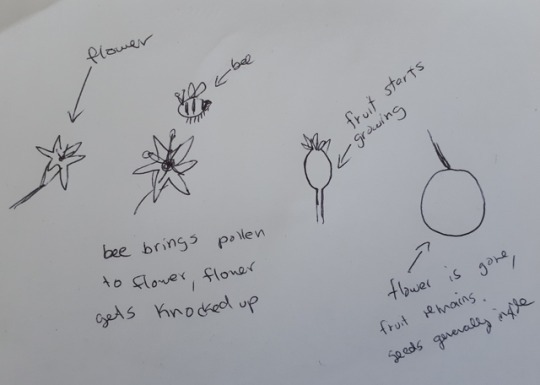 flower
bee
bee brings pollen
to flower, flower
gets knocked up
fruit starts
growing
flower is gone,
fruit remains.
seeds generally inside